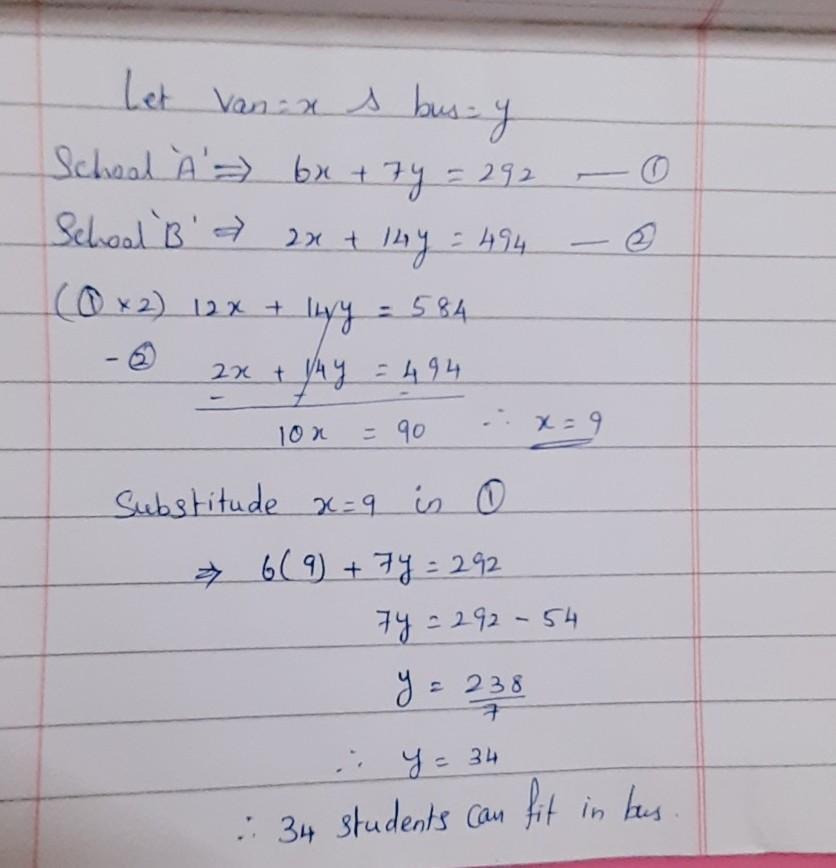 Let Van=x & bus=y
School 'A' ⇒ 6x + 7y = 292 — ①
School 'B' ⇒ 2x + 14y = 494 — ②
(① × 2) 12x + 14y = 584
- ② 2x + 14y = 494
- - -
10x = 90 ∴ x = 9
Substitude x=9 in ①
⇒ 6(9) + 7y = 292
7y = 292 - 54
y = 238/7
∴ y = 34
∴ 34 students can fit in bus.